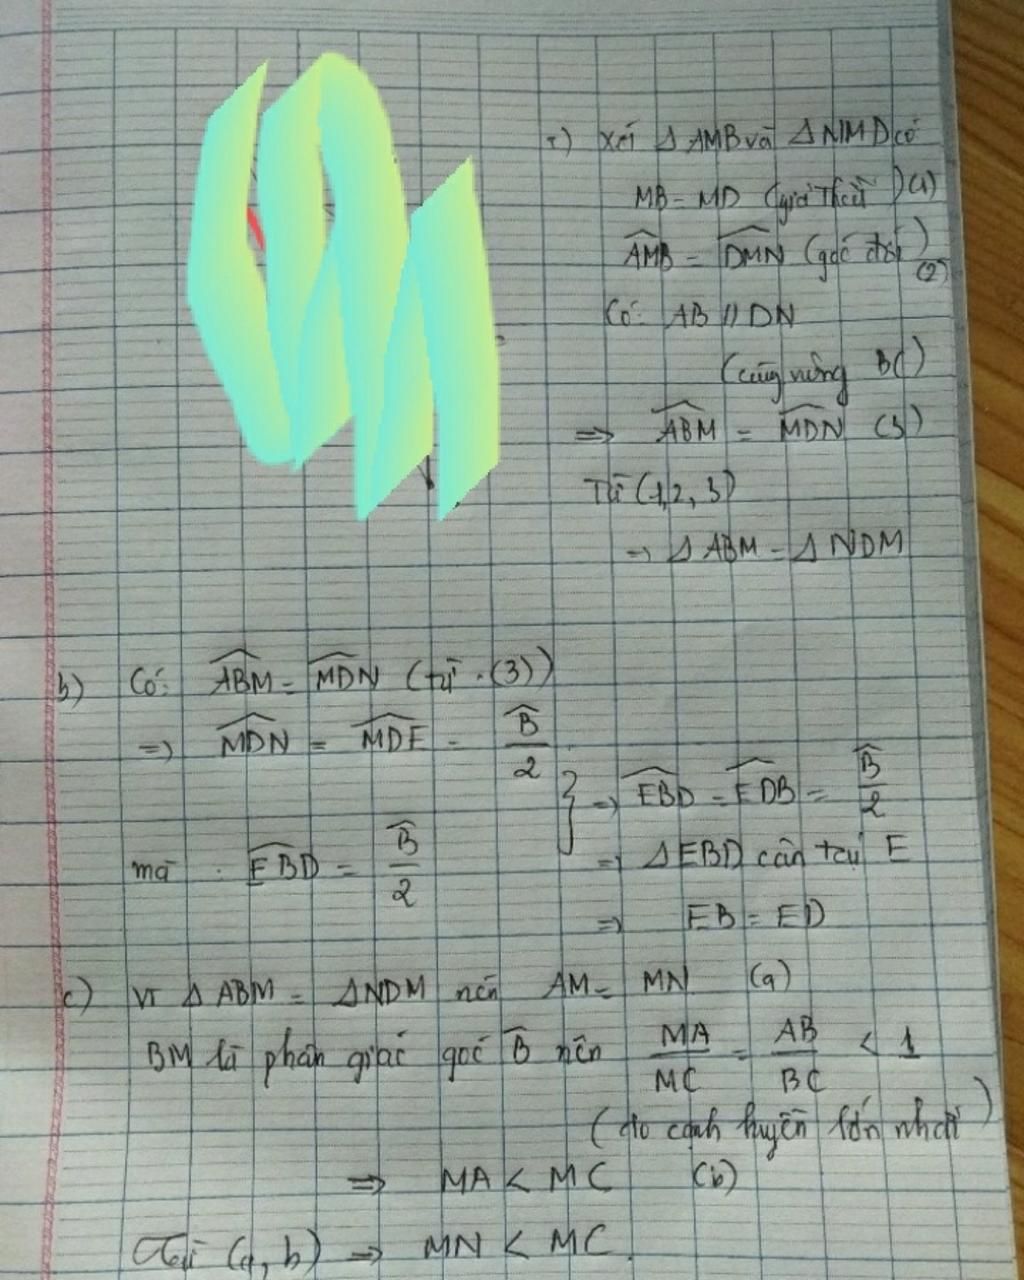 Xét Δ AMB và Δ NMD có
MB = MD (giả thiết) (1)
AMB = DMN (góc đối) (2)
Có: AB // DN
(cùng BC)
=> ABM = MDN (3)
Từ (1, 2, 3)
=> Δ ABM = Δ NDM
b) Có: ABM = MDN (từ (3))
=> MDN = MDE = B/2
mà EBD = B/2
} => EBD = EDB = B/2
=> Δ EBD cân tại E
=> EB = ED
c) Vì Δ ABM = Δ NDM nên AM = MN (a)
BM là phân giác góc B nên MA/MC = AB/BC < 1
(do cạnh huyền lớn nhất)
=> MA < MC (b)
Từ (a, b) => MN < MC.